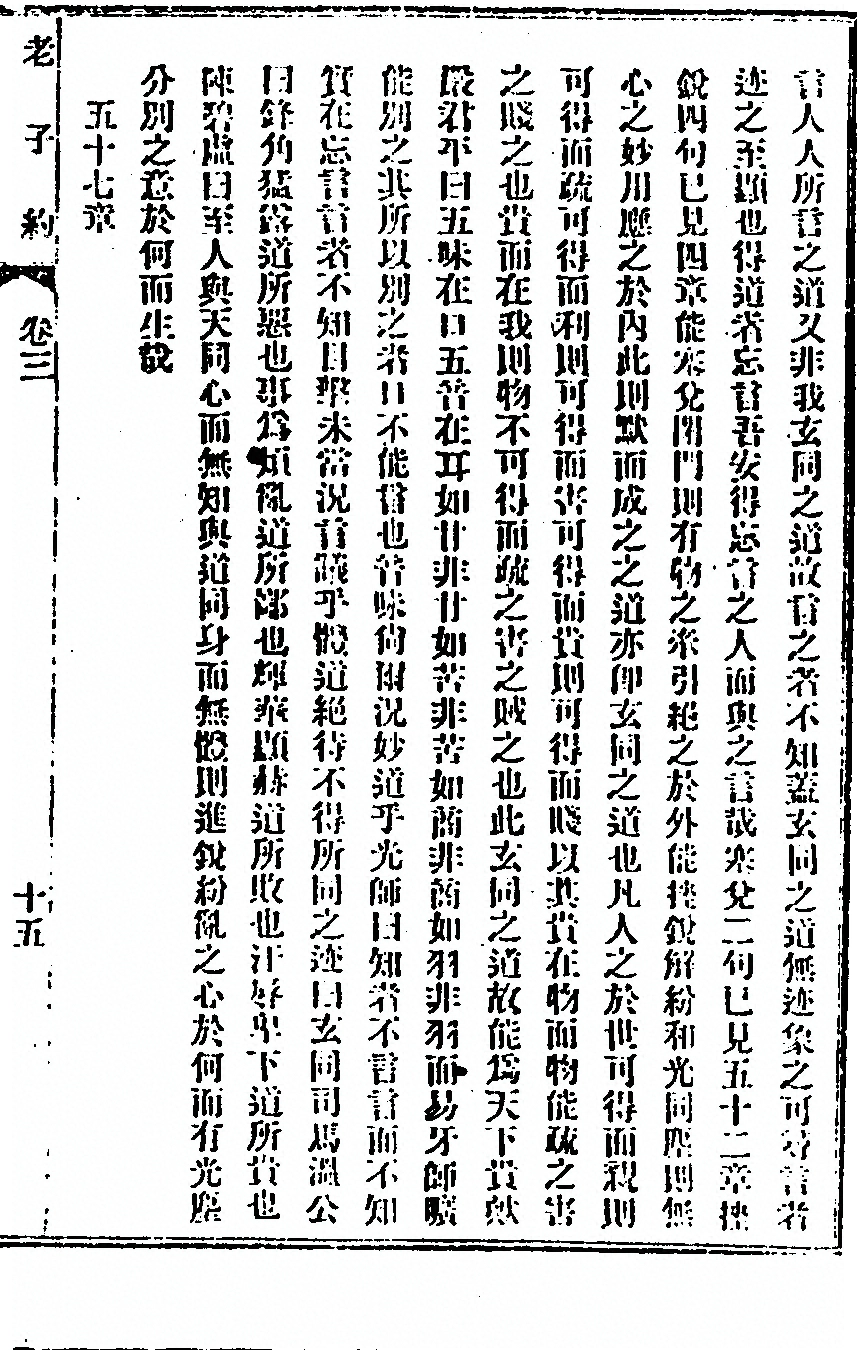 言人人所言之道又非我玄同之道故言之者不知蓋玄同之道無迹象之可尋言者
迹之至顯也得道者忘言吾安得忘言之人而與之言哉塞兌二句已見五十二章挫
銳四句已見四章能塞兌閉門則有物之來引絕之於外能挫銳解紛和光同塵則無
心之妙用應之於內此則默而成之之道亦卽玄同之道也凡人之於世可得而親則
可得而疏可得而利則可得而害可得而貴則可得而賤以其貴在物而物能疏之害
之賤之也貴而在我則物不可得而疏之害之賊之也此玄同之道故能爲天下貴歟
嚴君平曰五味在口五音在耳如甘非甘如苦非苦如商非商如羽非羽而易牙師曠
能別之其所以別之者口不能言也音味尙爾況妙道乎光師曰知者不言言而不知
實在忘言言者不知目擊未當況言議乎體道絕待不得所同之迹曰玄同司馬溫公
曰鋒角猛露道所惡也事爲煩亂道所鄙也輝華顯赫道所敗也汙辱卑下道所貴也
陳碧虛曰至人與天同心而無知與道同身而無體則進銳紛亂之心於何而有光塵
分別之意於何而生哉
五十七章
老子約
卷三
十五